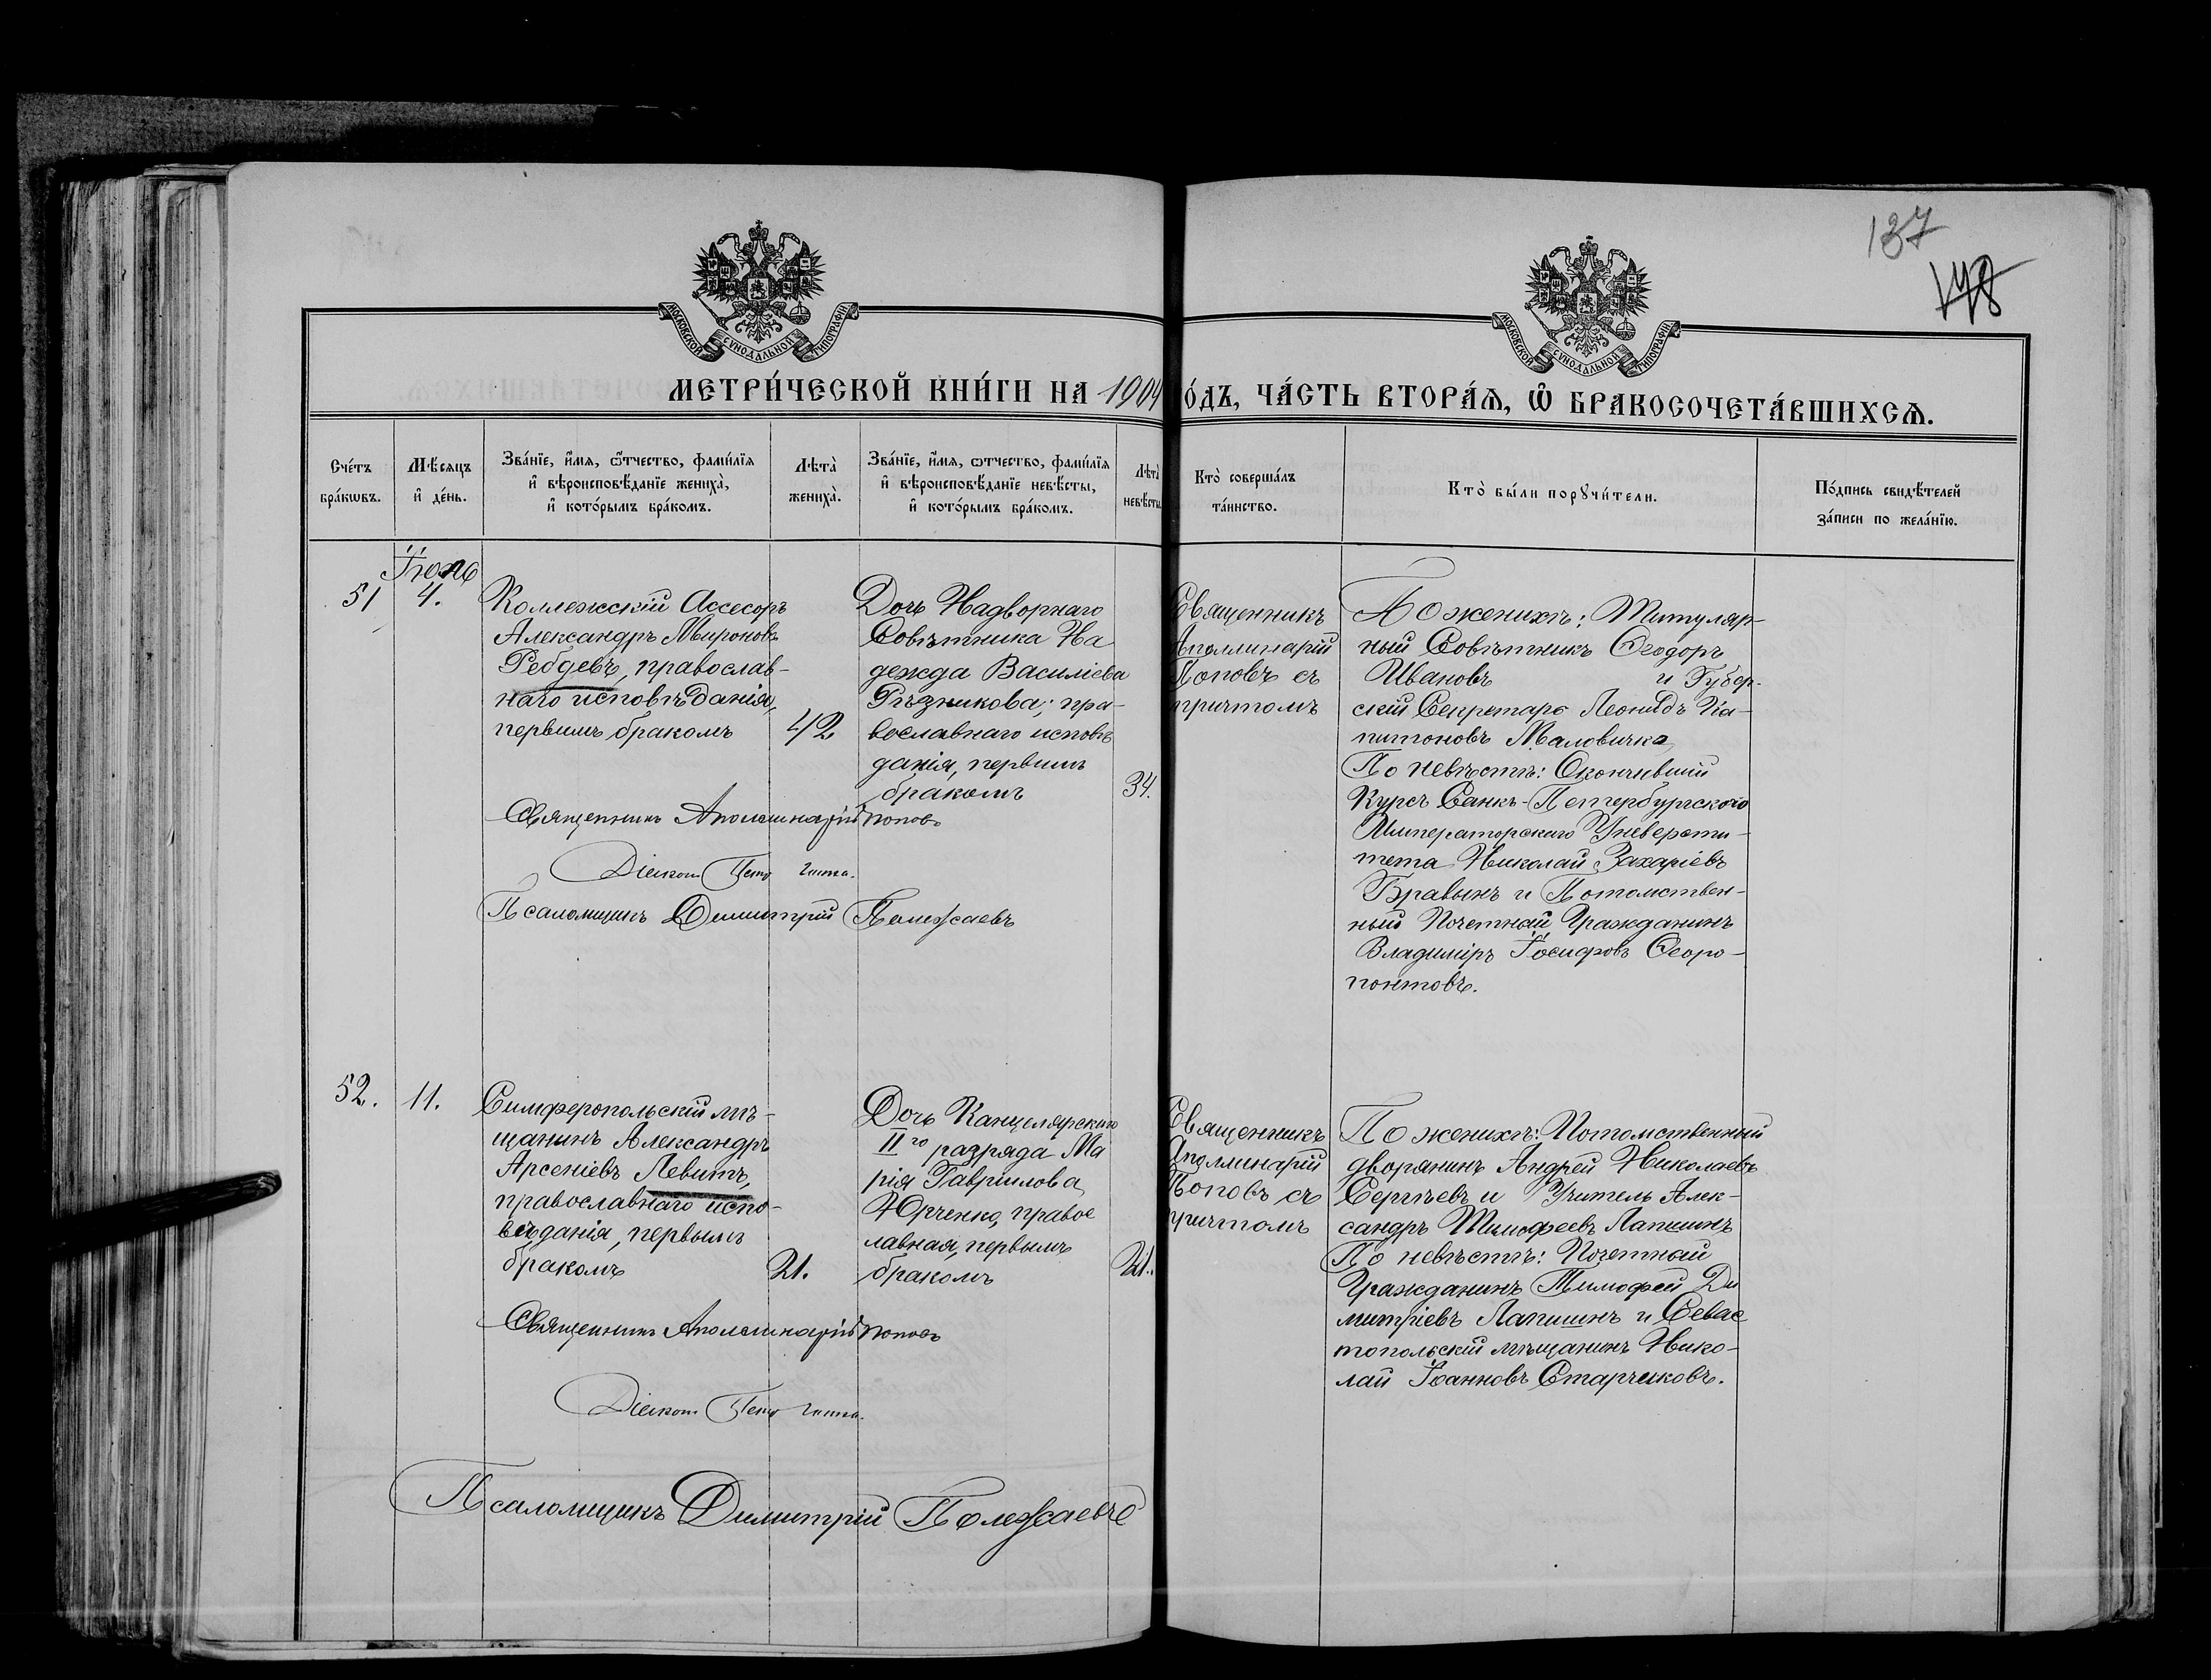 137
148
МОСКОВСКОЙ СУНОДАЛЬНОЙ ТИПОГРАФІИ
МОСКОВСКОЙ СУНОДАЛЬНОЙ ТИПОГРАФІИ
МЕТРИ́ЧЕСКОЙ КНИ́ГИ НА 1904 ГО́ДЪ, ЧА́СТЬ ВТОРА́Ѧ, Ѡ҆ БРАКОСОЧЕТА́ВШИХСѦ.
Сче́тъ
бра́кѡвъ.
Мѣ́сяцъ
и҆ де́нь.
Зва́нїе, и҆́мѧ, ѻ҆́тчество, фами́лїѧ
и҆ вѣроисповѣ́данїе жениха̀,
и҆ кото́рымъ бра́комъ.
Лѣта̀
жениха̀.
Зва́нїе, и҆́мѧ, ѻ҆́тчество, фами́лїѧ
и҆ вѣроисповѣ́данїе невѣ́сты,
и҆ кото́рымъ бра́комъ.
Лѣта̀
невѣ́сты
Кто̀ соверша́лъ
та́инство.
Кто̀ бы́ли порꙋчи́тели.
По́дпись свидѣ́телей
за́писи по жела́нїю.
Іюль
51
4.
Коллежскій Ассесоръ
Александръ Мироновъ
Ребдевъ, православ-
наго исповѣданія,
первымъ бракомъ
42
Дочь Надворнаго
Совѣтника На
дежда Василіева
Рѣзникова; пра-
вославнаго исповѣ
данія, первымъ
бракомъ
34.
Священникъ
Аполлинарій
Поповъ съ
причтомъ
По женихѣ: Титуляр-
ный Совѣтникъ Ѳеодоръ
Ивановъ и Губер-
скій Секретарь Леонидъ Ка-
питоновъ Маловичка
По невѣстѣ: Окончившій
Курсъ Санкъ-Петербургскаго
Императорскаго Универси-
тета Николай Захаріевъ
Бравынъ и Потомствен-
ный Почетный Гражданинъ
Владиміръ Іосифовъ Ѳеоро-
понтовъ.
Священникъ Аполлинарій Поповъ
Діаконъ Петръ
Псаломщикъ Димитрій Полежаевъ
52.
11.
Симферопольскій мѣ-
щанинъ Александръ
Арсеніевъ Левитъ,
православнаго испо-
вѣданія, первымъ
бракомъ
21.
Дочь Канцелярскаго
IIго разряда Ма
рія Гавріилова
Юрченко, правос
лавная, первымъ
бракомъ
21.
Священникъ
Аполлинарій
Поповъ съ
причтомъ
По женихѣ: Потомственный
дворянинъ Андрей Николаевъ
Сергѣевъ и Учитель Алек-
сандръ Тимофеевъ Лапшинъ
По невѣстѣ: Почетный
Гражданинъ Тимофей Ди
митріевъ Лапшинъ и Севас
топольскій мѣщанинъ Нико-
лай Іоанновъ Старчиковъ.
Священникъ Аполлинарій Поповъ
Діаконъ Петръ
Псаломщикъ Димитрій Полежаевъ